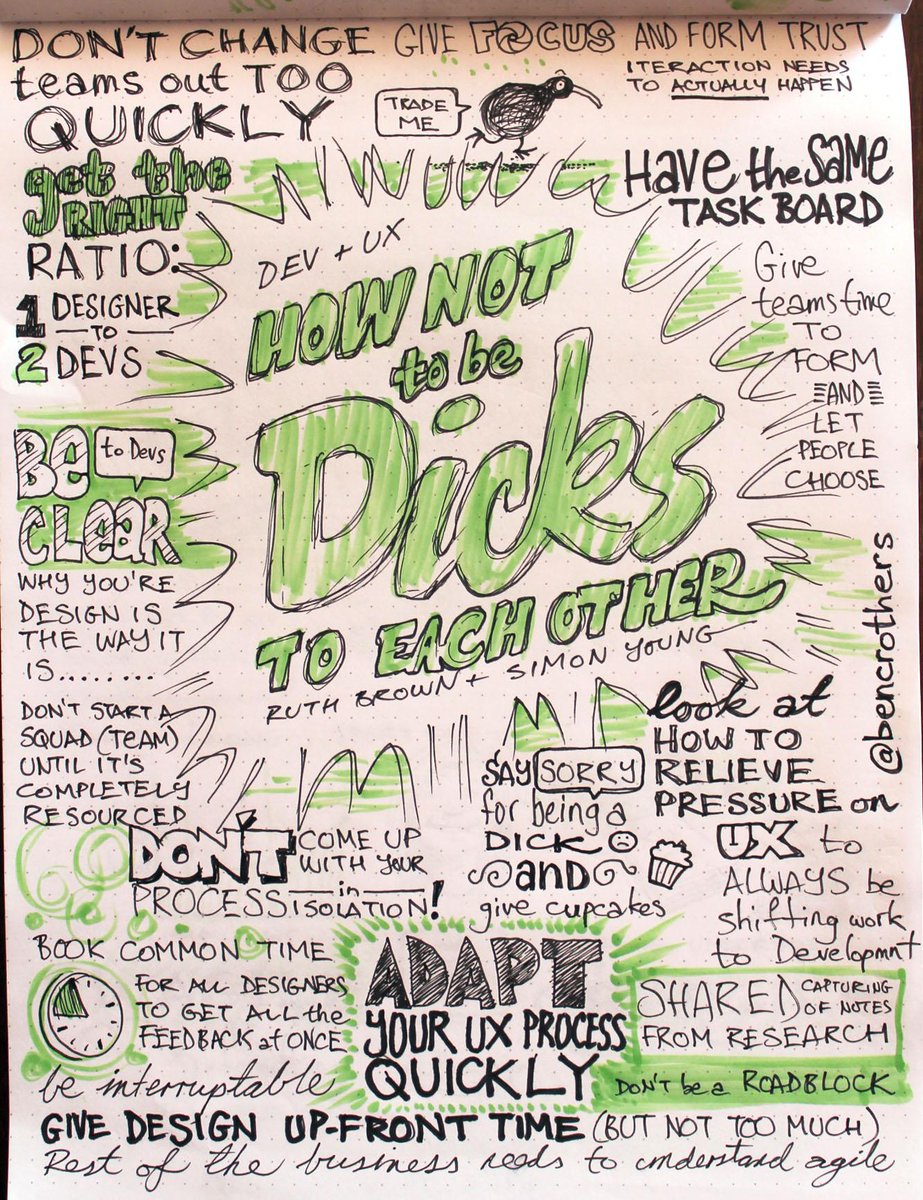 DON'T CHANGE
teams out TOO
QUICKLY
GIVE FOCUS AND FORM TRUST
ITERACTION NEEDS
TO ACTUALLY HAPPEN
TRADE
ME
get the
RIGHT
RATIO:
1 DESIGNER
TO
2 DEVS
HAVE the SAME
TASK BOARD
Give
teams time
TO
FORM
AND
LET
PEOPLE
CHOOSE
DEV + UX
HOW NOT
to be
Dicks
TO EACH OTHER
RUTH BROWN + SIMON YOUNG
BE to Devs
CLEAR
WHY YOU'RE
DESIGN IS
THE WAY IT
IS........
DON'T START A
SQUAD (TEAM)
UNTIL IT'S
COMPLETELY
RESOURCED
@bencrothers
look at
HOW TO
RELIEVE
PRESSURE on
UX to
ALWAYS be
shifting work
to Developmnt
SAY SORRY
for being a
DICK
and
give cupcakes
DON'T COME UP
WITH YOUR
PROCESS in
ISOLATION!
BOOK COMMON TIME
FOR ALL DESIGNERS
TO GET ALL the
FEEDBACK at ONCE
be interruptable
ADAPT
YOUR UX PROCESS
QUICKLY
SHARED CAPTURING
OF NOTES
FROM RESEARCH
DON'T be a ROADBLOCK
GIVE DESIGN UP-FRONT TIME (BUT NOT TOO MUCH)
Rest of the business needs to understand agile